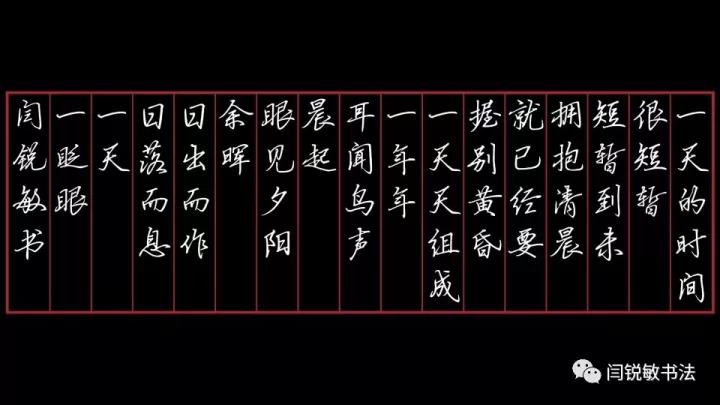 一天的时间
很短暂
短暂到未
拥抱清晨
就已经要
握别黄昏
一天天组成
一年年
耳闻鸟声
晨起
眼见夕阳
余晖
日出而作
日落而息
一天
一眨眼
闫锐敏书
闫锐敏书法